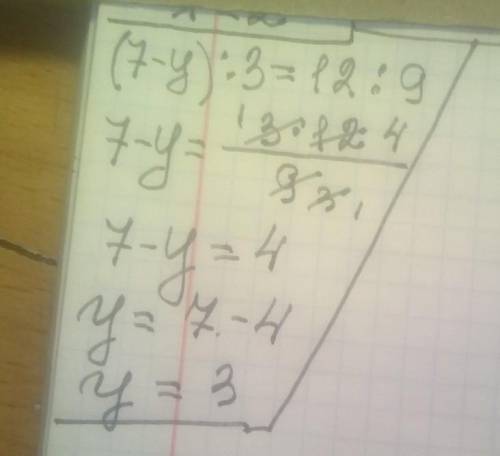 (7-y):3=12:9
7-y= 1 3·12 4 / 9 3 1
7-y=4
y= 7-4
y = 3